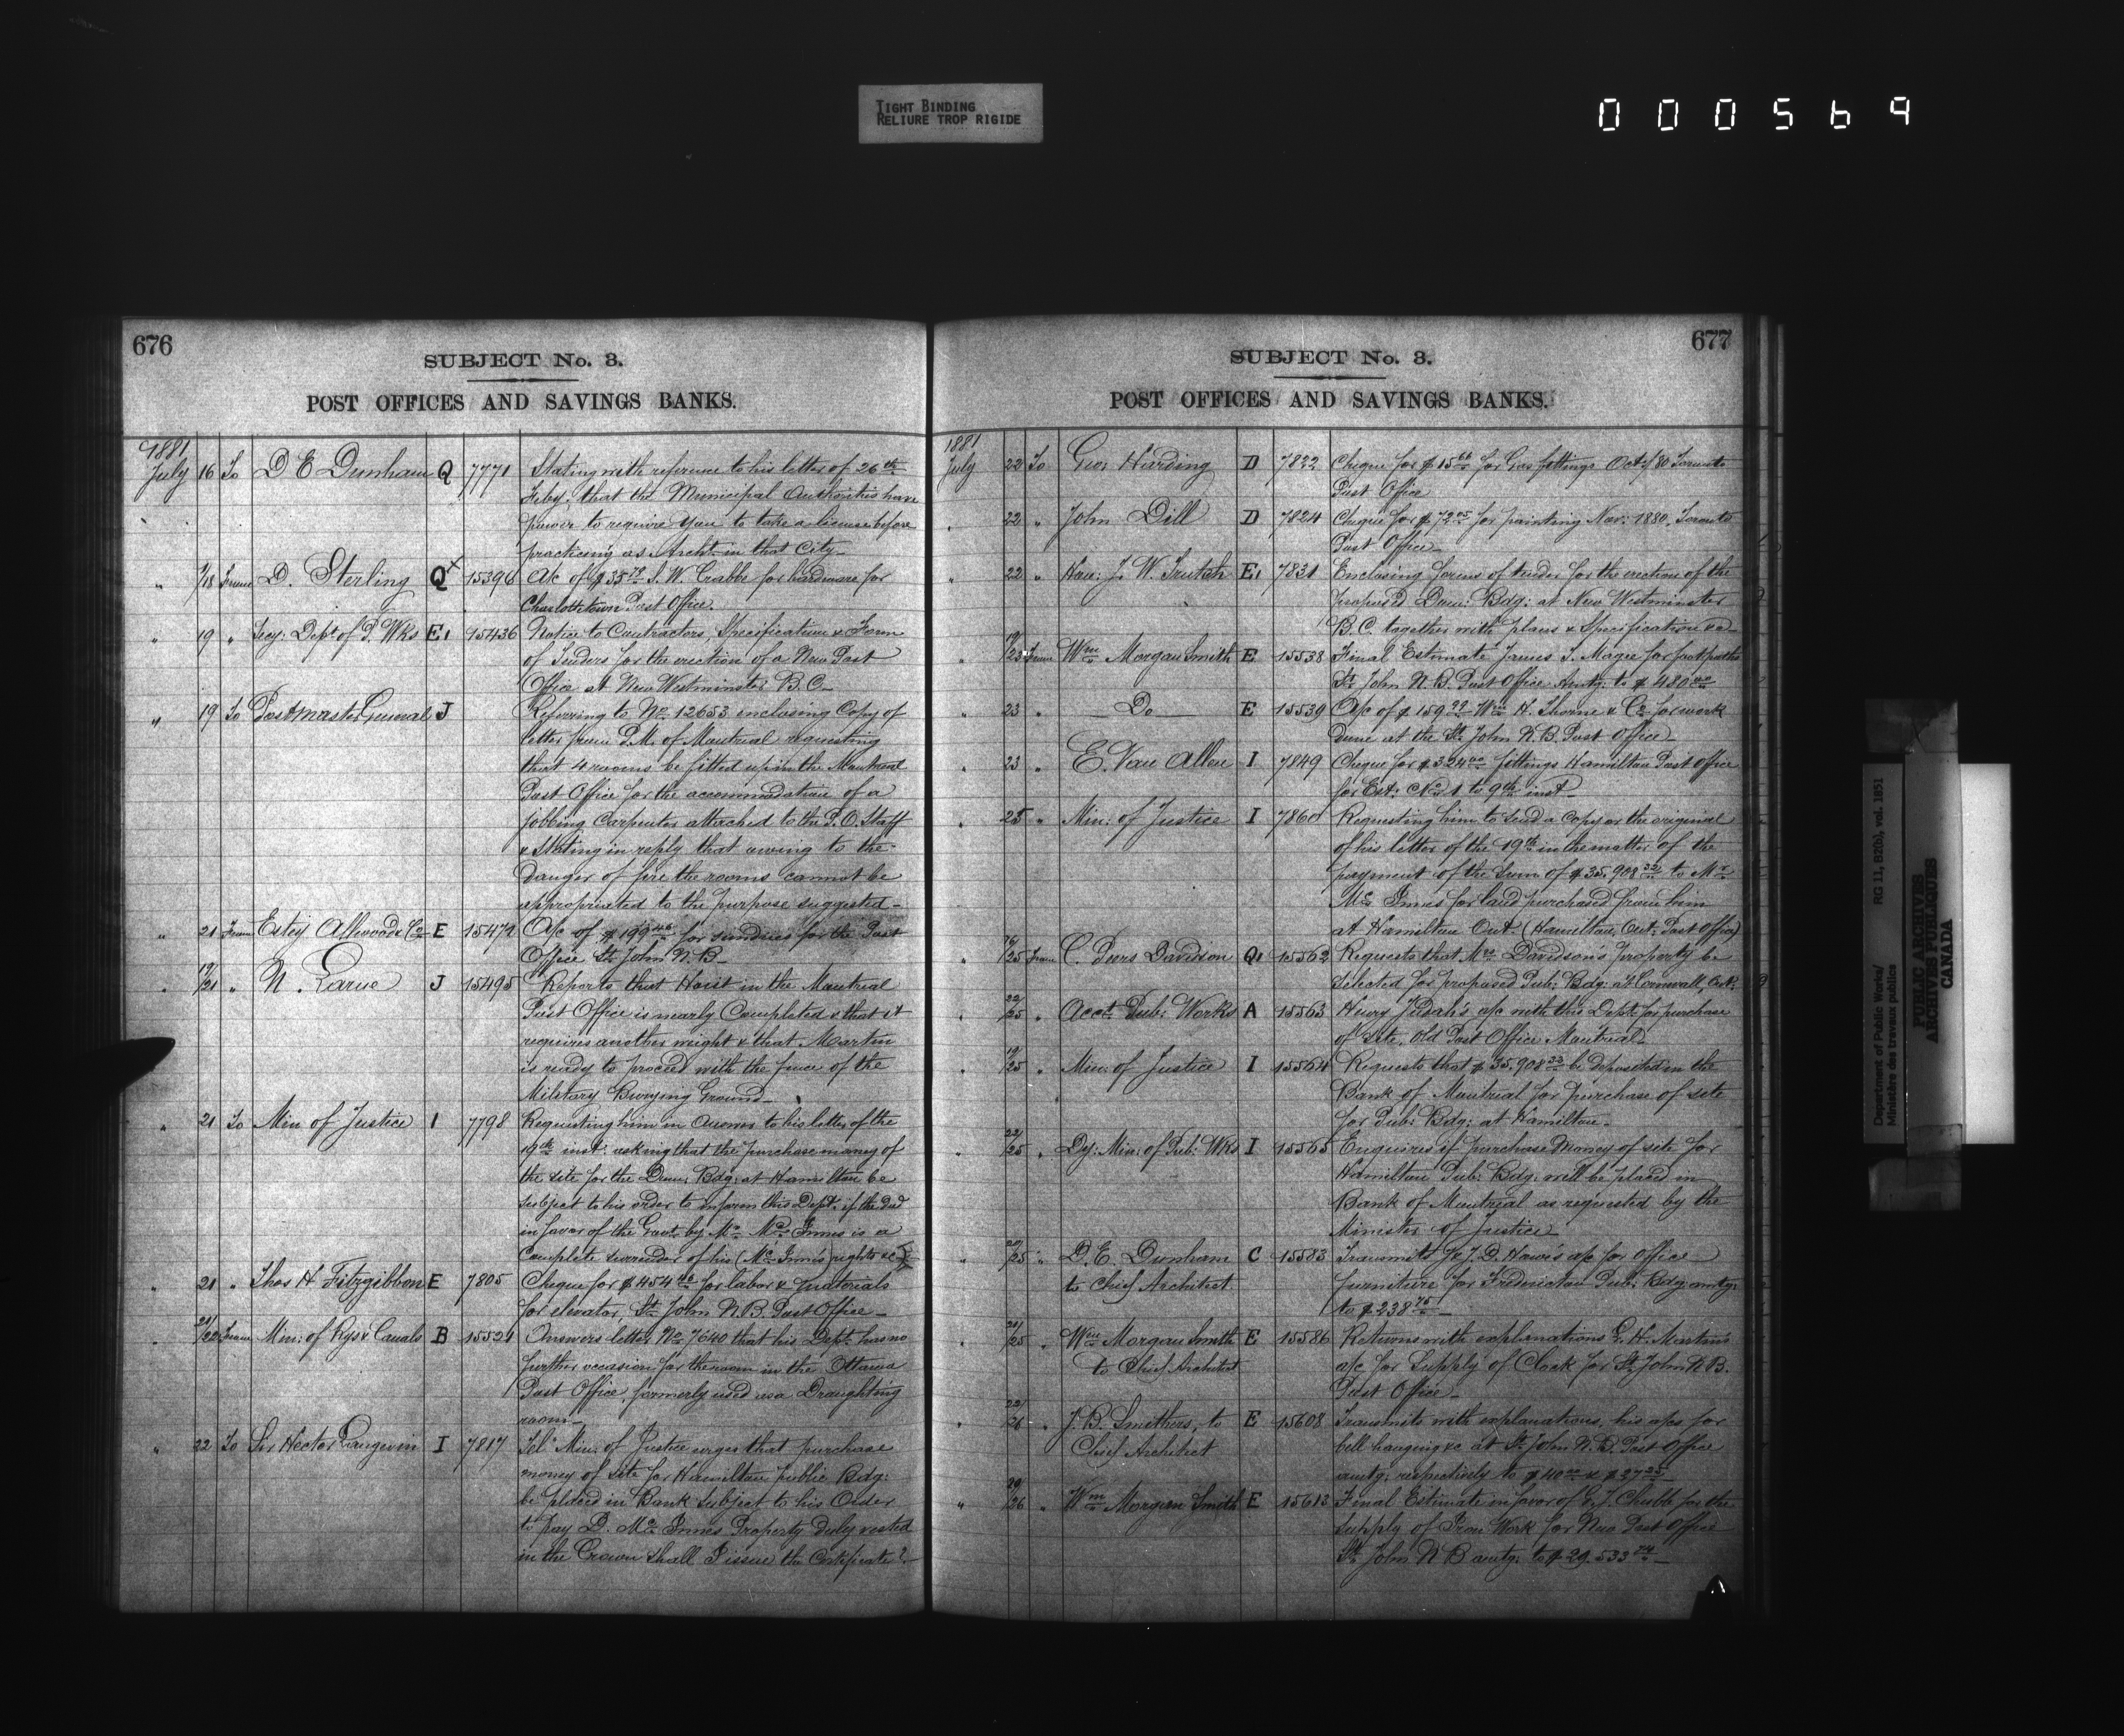 TIGHT BINDING
RELIURE TROP RIGIDE
000569
676
SUBJECT No. 3.
POST OFFICES AND SAVINGS BANKS.
1881
July 16 To D E Dunham Q 7771 Stating with reference to his letter of 26th
Feby. that the Municipal Authorities have
power to require you to take a license before
practicing as Archt. in that City—
" /18 From D. Sterling Q x 15396 A/c of $35 79 S. W. Crabbe for hardware for
Charlottetown Post Office.
" 19 " Secy: Dept of P. Wks E1 15436 Notice to Contractors, Specification & Form
of Tenders for the erection of a New Post
Office at New Westminster B.C—
" 19 To Postmaster General J Referring to No 12653 enclosing Copy of
letter from P.M. of Montreal requesting
that 4 rooms be fitted up in the Montreal
Post Office for the accommodation of a
jobbing Carpenter attached to the P.O. Staff
& Stating in reply that owing to the
danger of fire the rooms cannot be
appropriated to the purpose suggested—
" 21 From Estey Allwood & Co E 15472 A/c of $199 46 for sundries for the Post
Office St. John N.B—
" 19/21 " N. Larue J 15495 Reports that Hoist in the Montreal
Post Office is nearly Completed & that it
requires another weight & that Martin
is ready to proceed with the fence of the
Military Burying Ground—
" 21 To Min of Justice I 7798 Requesting him in answer to his letter of the
19th inst: asking that the purchase money of
the site for the Dom: Bdg: at Hamilton be
subject to his order to inform this Dept. if the deed
in favor of the Govt. by Mr. McInnes is a
Complete surrender of his (McInnes rights &c)
" 21 " Thos H Fitzgibbon E 7805 Cheque for $454 40 for labor & materials
for elevator St. John N.B. Post Office—
" 21/22 From Min: of Rys & Canals B 15521 Answers letter No 7640 that his Dept. has no
further occasion for the room in the Ottawa
Post Office, formerly used as a Draughting
room—
" 22 To Sir Hector Langevin I 7817 Tel: Min: of Justice urges that purchase
money of site for Hamilton public Bdg:
be placed in Bank subject to his Order
to pay D. McInnes Property duly vested
in the Crown Shall I issue the Certificate?—
677
SUBJECT No. 3.
POST OFFICES AND SAVINGS BANKS.
1881
July 22 To Geo: Harding D 7822 Cheque for $15 for Gas fittings Oct:/80 Toronto
Post Office
" 22 " John Dill D 7824 Cheque for $72 05 for painting Nov: 1880, Toronto
Post Office—
" 22 " Hon: J. W. Trutch E1 7831 Enclosing forms of tender for the erection of the
proposed Dom: Bdg: at New Westminster
B.C. together with plans & Specification &c—
" 19/23 From Wm Morgan Smith E 15538 Final Estimate James S. Magee for footpaths
St. John N.B. Post Office Amtg: to $480 00
" 23 " Do E 15539 A/c of $159 99 Wm H. Thorne & Co for work
done at the St. John N.B. Post Office—
" 23 " E. Van Allen I 7849 Cheque for $324 00 fittings Hamilton Post Office
for Est: No 1 to 9th inst—
" 25 " Min: of Justice I 7860 Requesting him to send a Copy or the original
of his letter of the 19th in the matter of the
payment of the Sum of $35.908 33 to Mr
McInnes for land purchased from him
at Hamilton Ont. (Hamilton, Ont. Post Office)
" /25 From C. Peers Davidson Q1 15562 Requests that Mrs Davidson's Property be
selected for proposed Pub: Bdg: at Cornwall, Ont:
" 22/25 " Acct. Pub: Works A 15563 Henry Judah's a/c with this Dept. for purchase
of site, Old Post Office Montreal
" 19/25 " Min: of Justice I 15564 Requests that $35.908 33 be deposited in the
Bank of Montreal for purchase of site
for Pub: Bdg: at Hamilton—
" 22/25 " Dy: Min: of Pub: Wks I 15565 Enquires if purchase Money of site for
Hamilton Pub: Bdg: will be placed in
Bank of Montreal as requested by the
Minister of Justice
" 20/25 " D. E. Dunham C 15583 Transmits a/c for office
to Chief Architect furniture for Fredericton Pub: Bdg: amtg:
to $238 75—
" 21/25 " Wm Morgan Smith E 15586 Returns with explanations G. H. Martin's
to Chief Architect a/c for Supply of Clock for St. John N.B.
Post Office—
" 22/26 " J. B. Smithers, to E 15608 Transmits with explanations, his a/cs for
Chief Architect bell hanging &c at St. John N.B. Post Office
amtg: respectively to $40 00 & $27 25
" 20/26 " Wm Morgan Smith E 15613 Final Estimate in favor of G. J. Chubb for the
supply of Iron Work for New Post Office
St. John N B amtg: to $29.533 74—
Department of Public Works/ RG 11, B2(b), vol. 1851
Ministère des travaux publics
PUBLIC ARCHIVES
ARCHIVES PUBLIQUES
CANADA